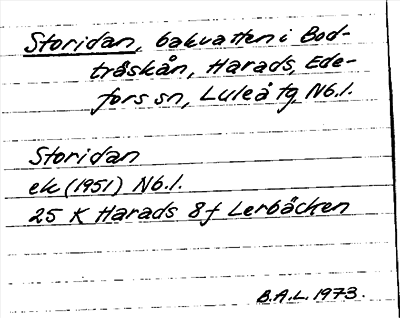 Storidan, bakvatten i Bod-
träskån, Harads, Ede-
fors sn, Luleå tg, Nb.l.
Storidan
ek (1951) Nb.l.
25 K Harads 8f Lerbäcken
B.A.L. 1973.